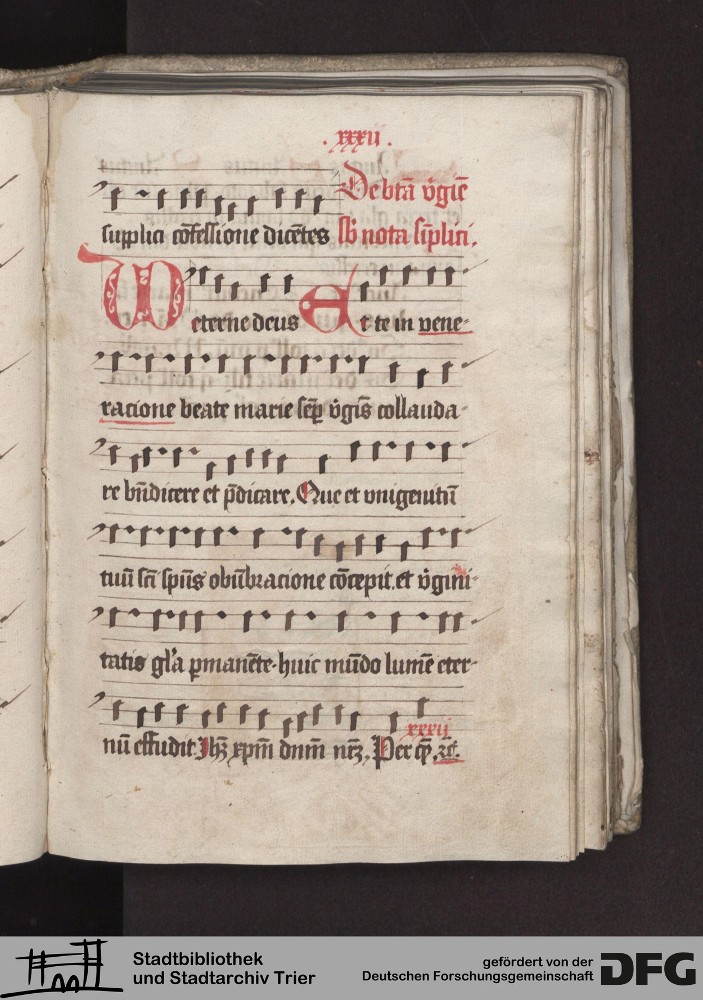 . xxxii .
De btā v̓gīe
supplici cōfessione dicētes sb̄ nota sīplici.
VD eterne deus Et te in vene-
racione beate marie sēp̱ v̓gīs collauda-
re bn̄dicere et p̄dicare. Que et vnigenitū
tuū sc̄i sp̄us obūbracione cōcepit. et v̓gini-
tatis gl̓a ꝑmanēte. huic mūdo lumē eter-
xxxij
nū effudit Jhꝫ xp̄m dn̄m nr̄ꝫ. Per qē. ⁊c̄.
Stadtbibliothek
und Stadtarchiv Trier
gefördert von der
Deutschen Forschungsgemeinschaft
DFG